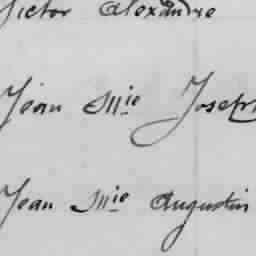 Victor Alexandre
Jean Mie Joseph
Jean Mie Augustin